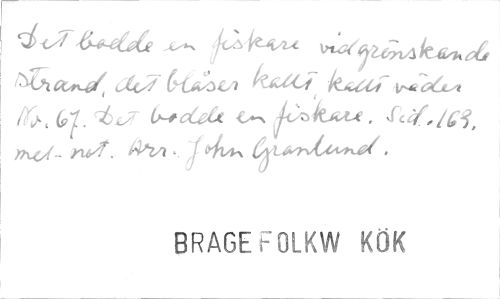 Det bodde en fiskare vid grönskande
strand, det blåser kallt, kallt väder
No. 67. Det bodde en fiskare. Sid. 169.
mel-not. Arr. John Granlund.
BRAGE FOLKW KÖK